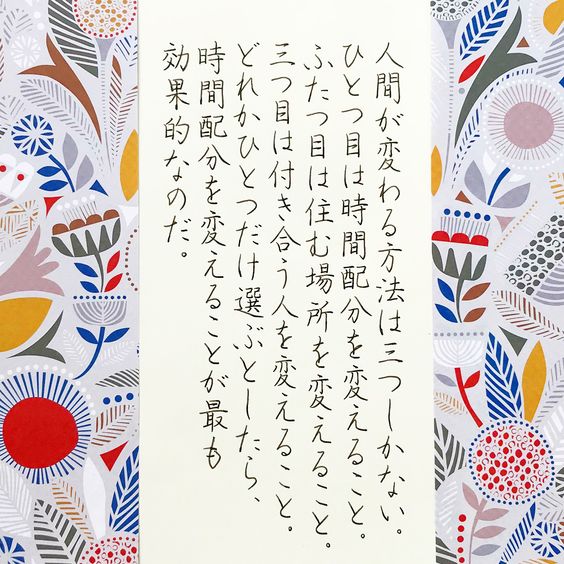 人間が変わる方法は三つしかない。
ひとつ目は時間配分を変えること。
ふたつ目は住む場所を変えること。
三つ目は付き合う人を変えること。
どれかひとつだけ選ぶとしたら、
時間配分を変えることが最も
効果的なのだ。